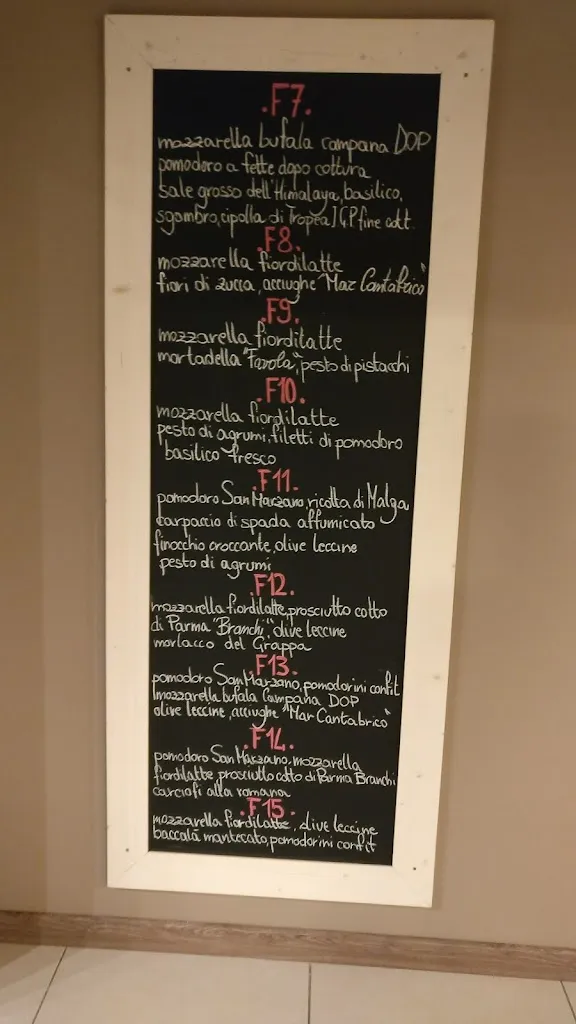 .F7.
mozzarella bufala campana DOP
pomodoro a fette dopo cottura
sale grosso dell'Himalaya, basilico,
sgombro, cipolla di Tropea IGP fine cott.
.F8.
mozzarella fiordilatte
fiori di zucca, acciughe "Mar Cantabrico"
.F9.
mozzarella fiordilatte
mortadella "Favola", pesto di pistacchi
.F10.
mozzarella fiordilatte
pesto di agrumi, filetti di pomodoro
basilico fresco
.F11.
pomodoro San Marzano, ricotta di Malga
carpaccio di spada affumicato
finocchio croccante, olive leccine
pesto di agrumi
.F12.
mozzarella fiordilatte, prosciutto cotto
di Parma "Branchi", olive leccine
morlacco del Grappa
.F13.
pomodoro San Marzano, pomodorini confit
mozzarella bufala Campana DOP
olive leccine, acciughe "Mar Cantabrico"
.F14.
pomodoro San Marzano, mozzarella
fiordilatte prosciutto cotto di Parma Branchi
carciofi alla romana
.F15.
mozzarella fiordilatte, olive leccine
baccalà mantecato, pomodorini confit